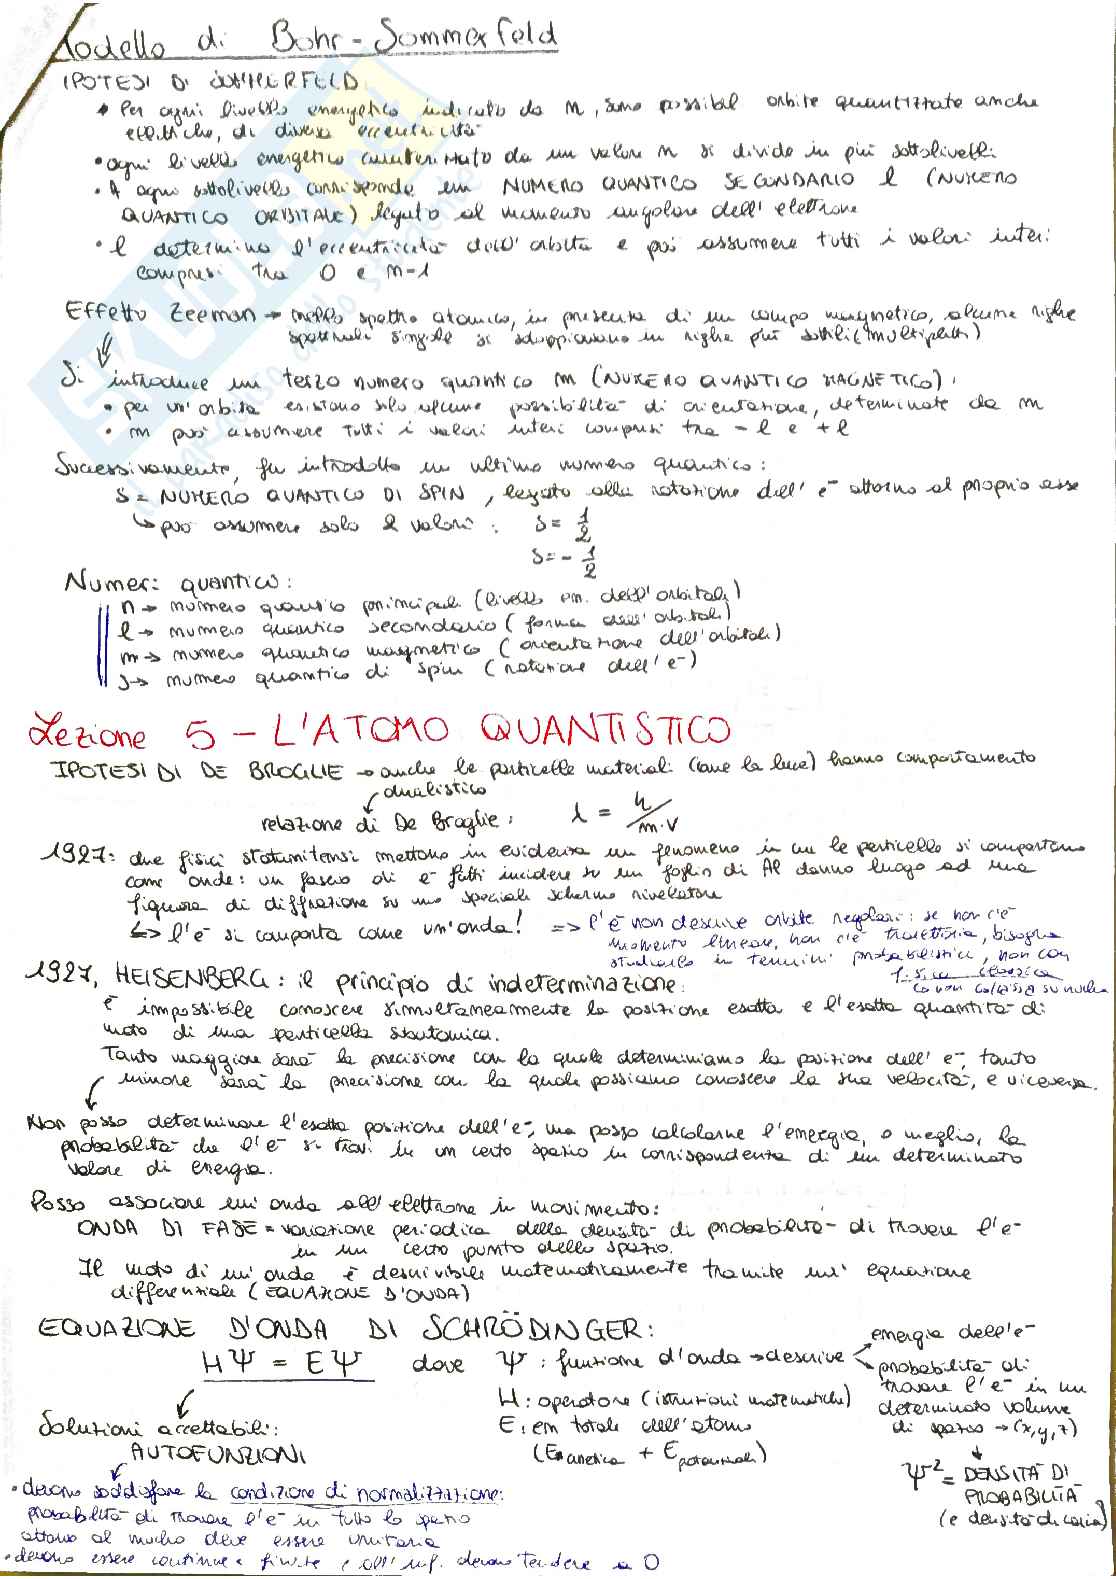 Modello di Bohr-Sommerfeld
IPOTESI DI SOMMERFELD
• Per ogni livello energetico indicato da n, sono possibili orbite quantizzate anche
ellittiche, di diversa eccentricità
• ogni livello energetico caratterizzato da un valore n si divide in più sottolivelli
• A ogni sottolivello corrisponde un NUMERO QUANTICO SECONDARIO l (NUMERO
QUANTICO ORBITALE) legato al momento angolare dell'elettrone
• l determina l'eccentricità dell'orbita e può assumere tutti i valori interi
compresi tra 0 e n-1
Effetto Zeeman → nello spettro atomico, in presenza di un campo magnetico, alcune righe
spettrali singole si sdoppiavano in righe più sottili (multipletti)
Si introduce un terzo numero quantico m (NUMERO QUANTICO MAGNETICO):
• per un'orbita esistono solo alcune possibilità di orientazione, determinate da m
• m può assumere tutti i valori interi compresi tra -l e +l
Successivamente, fu introdotto un ultimo numero quantico:
s = NUMERO QUANTICO DI SPIN, legato alla rotazione dell' e⁻ attorno al proprio asse
↳ può assumere solo 2 valori: s = 1/2
s = - 1/2
Numeri quantici:
n → numero quantico principale (livello en. dell'orbitale)
l → numero quantico secondario (forma dell'orbitale)
m → numero quantico magnetico (orientazione dell'orbitale)
s → numero quantico di spin (rotazione dell'e⁻)
Lezione 5 - L'ATOMO QUANTISTICO
IPOTESI DI DE BROGLIE → anche le particelle materiali (come la luce) hanno comportamento
dualistico
relazione di De Broglie: λ = h/m·v
1927: due fisici statunitensi mettono in evidenza un fenomeno in cui le particelle si comportano
come onde: un fascio di e⁻ fatti incidere su un foglio di Al danno luogo ad una
figura di diffrazione su uno speciale schermo rivelatore
↳ l'e⁻ si comporta come un'onda! ⇒ l'e⁻ non descrive orbite regolari: se non c'è
momento lineare, non c'è traiettoria, bisogna
studiarlo in termini probabilistici, non con
fisica classica
↳ non collassa su nucleo
1927, HEISENBERG: il principio di indeterminazione:
È impossibile conoscere simultaneamente la posizione esatta e l'esatta quantità di
moto di una particella subatomica.
Tanto maggiore sarà la precisione con la quale determiniamo la posizione dell'e⁻, tanto
minore sarà la precisione con la quale possiamo conoscere la sua velocità, e viceversa.
Non posso determinare l'esatta posizione dell'e⁻, ma posso calcolarne l'energia, o meglio, la
probabilità che l'e⁻ si trovi in un certo spazio in corrispondenza di un determinato
valore di energia.
Posso associare un'onda all'elettrone in movimento:
ONDA DI FASE = variazione periodica della densità di probabilità di trovare l'e⁻
in un certo punto dello spazio.
Il moto di un'onda è descrivibile matematicamente tramite un'equazione
differenziale (EQUAZIONE D'ONDA)
EQUAZIONE D'ONDA DI SCHRÖDINGER:
HΨ = EΨ dove Ψ: funzione d'onda → descrive
energia dell'e⁻
probabilità di
trovare l'e⁻ in un
determinato volume
di spazio → (x,y,z)
Ψ² = DENSITÀ DI
PROBABILITÀ
(e densità di carica)
H: operatore (istruzioni matematiche)
E: en totale dell'atomo
(Ecinetica + Epotenziale)
Soluzioni accettabili:
AUTOFUNZIONI
• devono soddisfare la condizione di normalizzazione:
probabilità di trovare l'e⁻ in tutto lo spazio
attorno al nucleo deve essere unitaria
• devono essere continue, finite e all'inf. devono tendere a 0